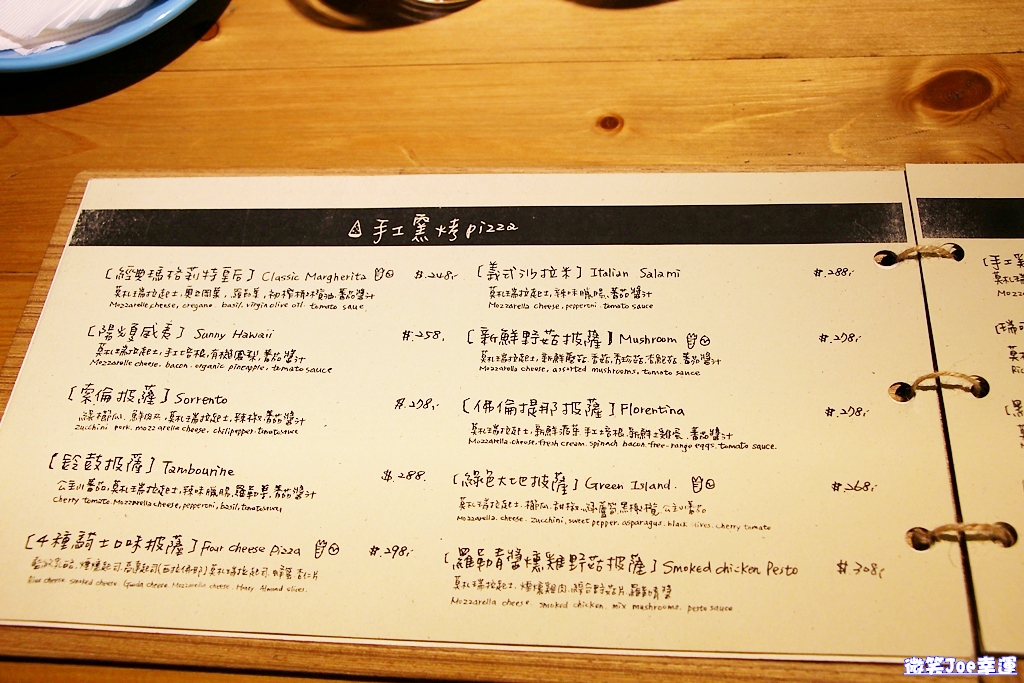 手工窯烤pizza
[經典瑪格莉特皇后] Classic Margherita $.248.-
莫札瑞拉起士,奧立岡葉,羅勒葉,初榨橄欖油,蕃茄醬汁
Mozzarella cheese, oregano. basil. virgin olive oil. tomato sauce.
[陽光夏威夷] Sunny Hawaii $.258.
莫札瑞拉起士,手工培根,有機鳳梨,蕃茄醬汁
Mozzarella cheese, bacon. organic pineapple, tomato sauce
[索倫披薩] Sorrento $.278.-
綠櫛瓜,鮮肉片,莫札瑞拉起士,辣椒,蕃茄醬汁
zucchini pork. mozzarella cheese. chili pepper. tomato sauce
[鈴鼓披薩] Tambourine $.288.
蕃茄,莫札瑞拉起士,辣味臘腸,羅勒葉,蕃茄醬汁
Cherry tomato. Mozzarella cheese, pepperoni, basil. tomato sauce
[4種騎士口味披薩] Four cheese pizza $.298.-
莫札瑞拉起司.蜂蜜.杏仁片
Blue cheese smoked cheese. Gouda cheese. Mozzarella cheese. Honey. Almond slices.
[義式沙拉米] Italian Salami $.288.-
莫札瑞拉起士,辣味臘腸,蕃茄醬汁
Mozzarella cheese, pepperoni. tomato sauce
[新鮮野菇披薩] Mushroom $.278.-
莫札瑞拉起士,新鮮蘑菇.香菇.秀珍菇.杏鮑菇.蕃茄醬汁
Mozzarella cheese, assorted mushrooms, tomato sauce
[佛倫提那披薩] Florentina $.278.-
莫札瑞拉起士,新鮮菠菜.手工培根.新鮮土雞蛋.蕃茄醬汁
Mozzarella cheese. fresh cream. spinach bacon. free-range eggs. tomato sauce.
[綠色大地披薩] Green Island. $.268.-
莫札瑞拉起士.櫛瓜.甜椒.綠蘆筍.黑橄欖.蕃茄
Mozzarella. cheese. zucchini, sweet pepper. asparagus. black olives. cherry tomato
[羅勒青醬燻雞野菇披薩] Smoked chicken Pesto $.308.-
莫札瑞拉起士.煙燻雞肉.綜合野菇片.羅勒青醬
Mozzarella cheese. smoked chicken. mix mushrooms. pesto sauce
微笑Joe幸運